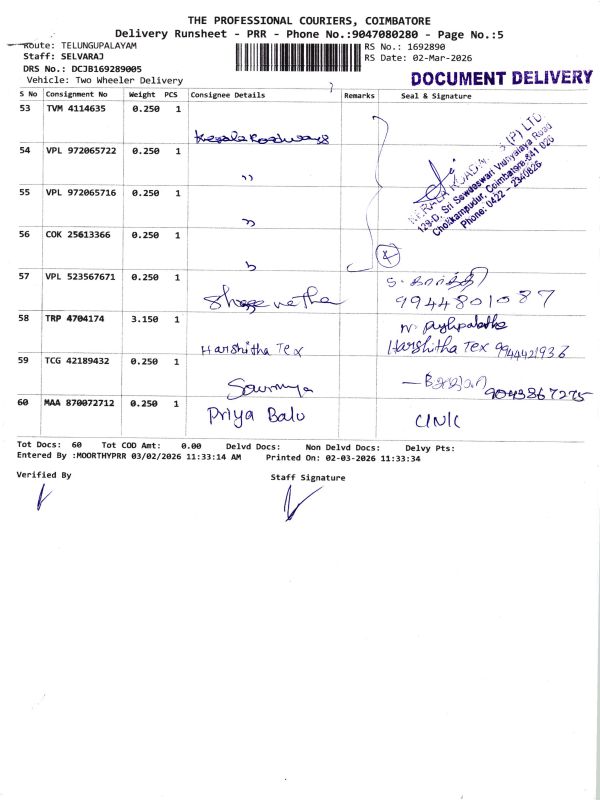 THE PROFESSIONAL COURIERS, COIMBATORE
Delivery Runsheet - PRR - Phone No.:9047080280 - Page No.:5
Route: TELUNGUPALAYAM
RS No.: 1692890
Staff: SELVARAJ
RS Date: 02-Mar-2026
DRS No.: DCJB169289005
Vehicle: Two Wheeler Delivery
DOCUMENT DELIVERY
S No Consignment No Weight PCS Consignee Details Remarks Seal & Signature
53 TVM 4114635 0.250 1
Kerala Roadways
54 VPL 972065722 0.250 1
"
55 VPL 972065716 0.250 1
"
56 COK 25613366 0.250 1
"
KERALA ROADWAYS (P) LTD
129-D, Sri Saweaswari Vidhyalaya Road
Chokkampudur, Coimbatore-641 026
Phone: 0422 - 2340826
4
57 VPL 523567671 0.250 1
S. கார்த்தி
9944801087
58 TRP 4704174 3.150 1
Harshitha Tex
Harshitha Tex 9944421936
59 TCG 42189432 0.250 1
Sowmya
9043867275
60 MAA 870072712 0.250 1
Priya Balu
Tot Docs: 60 Tot COD Amt: 0.00 Delvd Docs: Non Delvd Docs: Delvy Pts:
Entered By :MOORTHYPRR 03/02/2026 11:33:14 AM Printed On: 02-03-2026 11:33:34
Verified By
Staff Signature